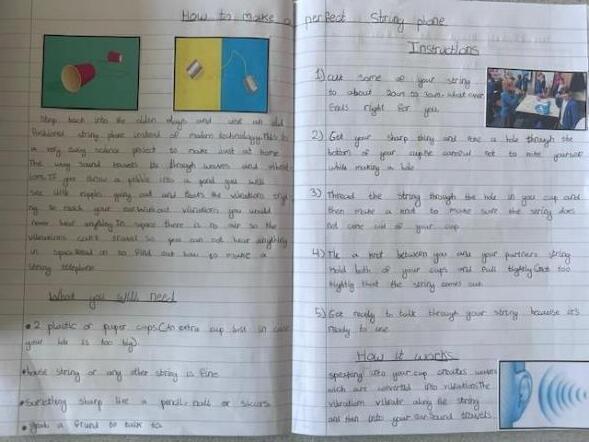 How to make a perfect string phone
Step back into the olden days and use an old
fashioned string phone instead of modern technology. This is
a very easy science project to make just at home.
The way sound travels is through waves and vibrat-
ions. If you throw a pebble into a pond you will
see little ripples going out and that's the vibrations tryi
ng to reach your ear. Without vibrations you would
never hear anything. In space there is no air so the
vibrations can't travel so you can not hear anything
in space. Read on to find out how to make a
string telephone
What you will need
• 2 plastic or paper cups (An extra cup just in case
your hole is too big)
• house string or any other string is fine
• Something sharp like a pencil, nail or
• Grab a friend to talk to
Instructions
1) Cut some of your string
to about 20cm to 30cm. what ever
feels right for you
2) Get your sharp thing and poke a hole through the
bottom of your cup. be careful not to hurt yourself
while making a hole
3) Thread the string through the hole in you cup and
then make a knot to make sure the string does
not come out of your cup
4) Tie a knot between you and your partners string
Hold both of your cups and Pull tightly (not too
tightly that the string comes out
5) Get ready to talk through your string because it's
ready to use
How it works
speaking into your cup creates waves
wich are converted into vibrations. The
vibrations vibrate along the string
and then into your ear. Sound travels